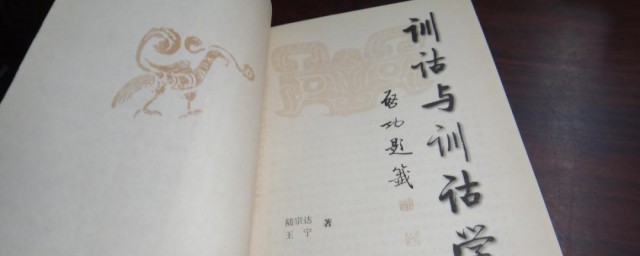 训诂与训诂学
启功题签
陆宗达
王宁 著